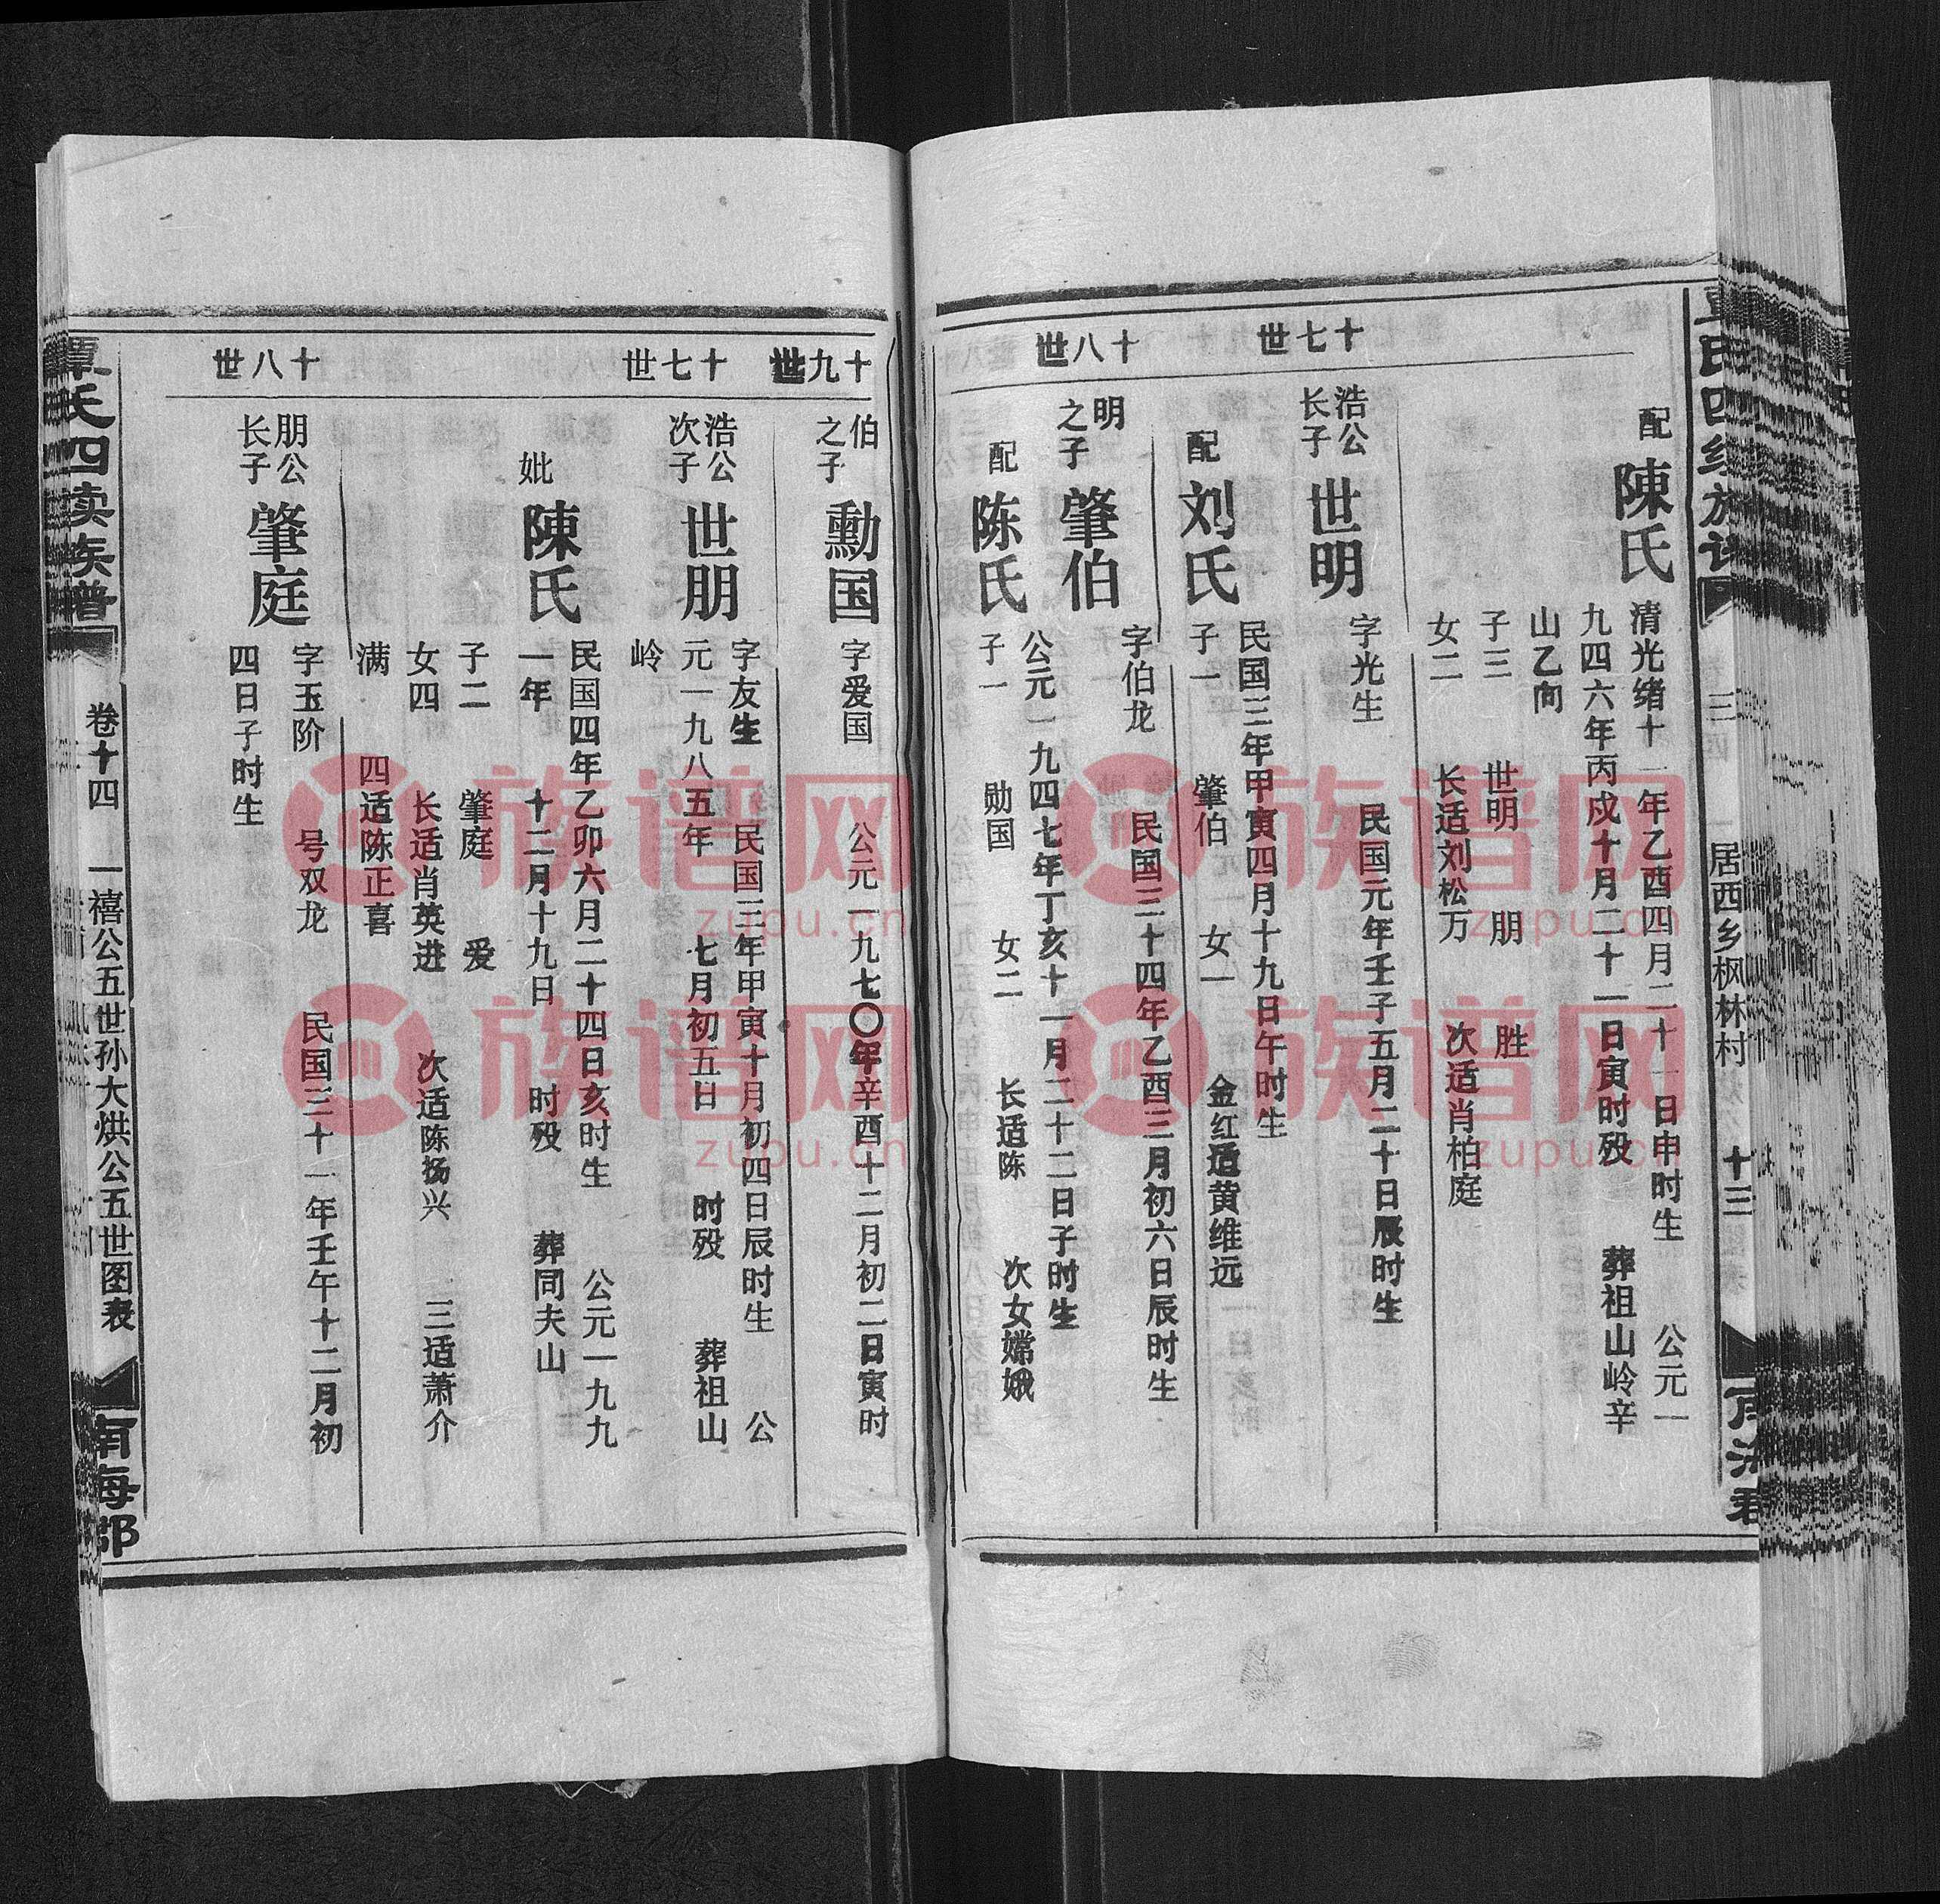 配 陳氏
清光绪十一年乙酉四月二十一日申时生 公元一
九四六年丙戍十月二十一日寅时殁 葬祖山岭辛
山乙向
子三 世明 朋 胜
女二 长适刘松万 次适肖柏庭
十七世
浩公
长子
世明
字光生 民国元年壬子五月二十日辰时生
配 刘氏
民国三年甲寅四月十九日午时生
子一 肇伯 女一 金红适黄维远
十八世
明
之子
肇伯
字伯龙 民国三十四年乙酉三月初六日辰时生
配 陈氏
公元一九四七年丁亥十一月二十二日子时生
子一 勋国 女二 长适陈 次女嫦娥
居西乡枫林村 十三
十九世
伯
之子
勳国
字爱国 公元一九七〇年辛酉十二月初二日寅时
十七世
浩公
次子
世朋
字友生 民国三年甲寅十月初四日辰时生 公
元一九八五年 七月初五日 时殁 葬祖山
岭
妣 陳氏
民国四年乙卯六月二十四日亥时生 公元一九九
一年 十二月十九日 时殁 葬同夫山
子二 肇庭 爱
女四 长适肖英进 次适陈扬兴 三适萧介
满 四适陈正喜
十八世
朋公
长子
肇庭
字玉阶 号双龙 民国三十一年壬午十二月初
四日子时生
譚氏四续族谱 卷十四 一禧公五世孙大烘公五世图表 南海郡
族谱网
zupu.cn
族谱网
zupu.cn
族谱网
zupu.cn
族谱网
zupu.cn